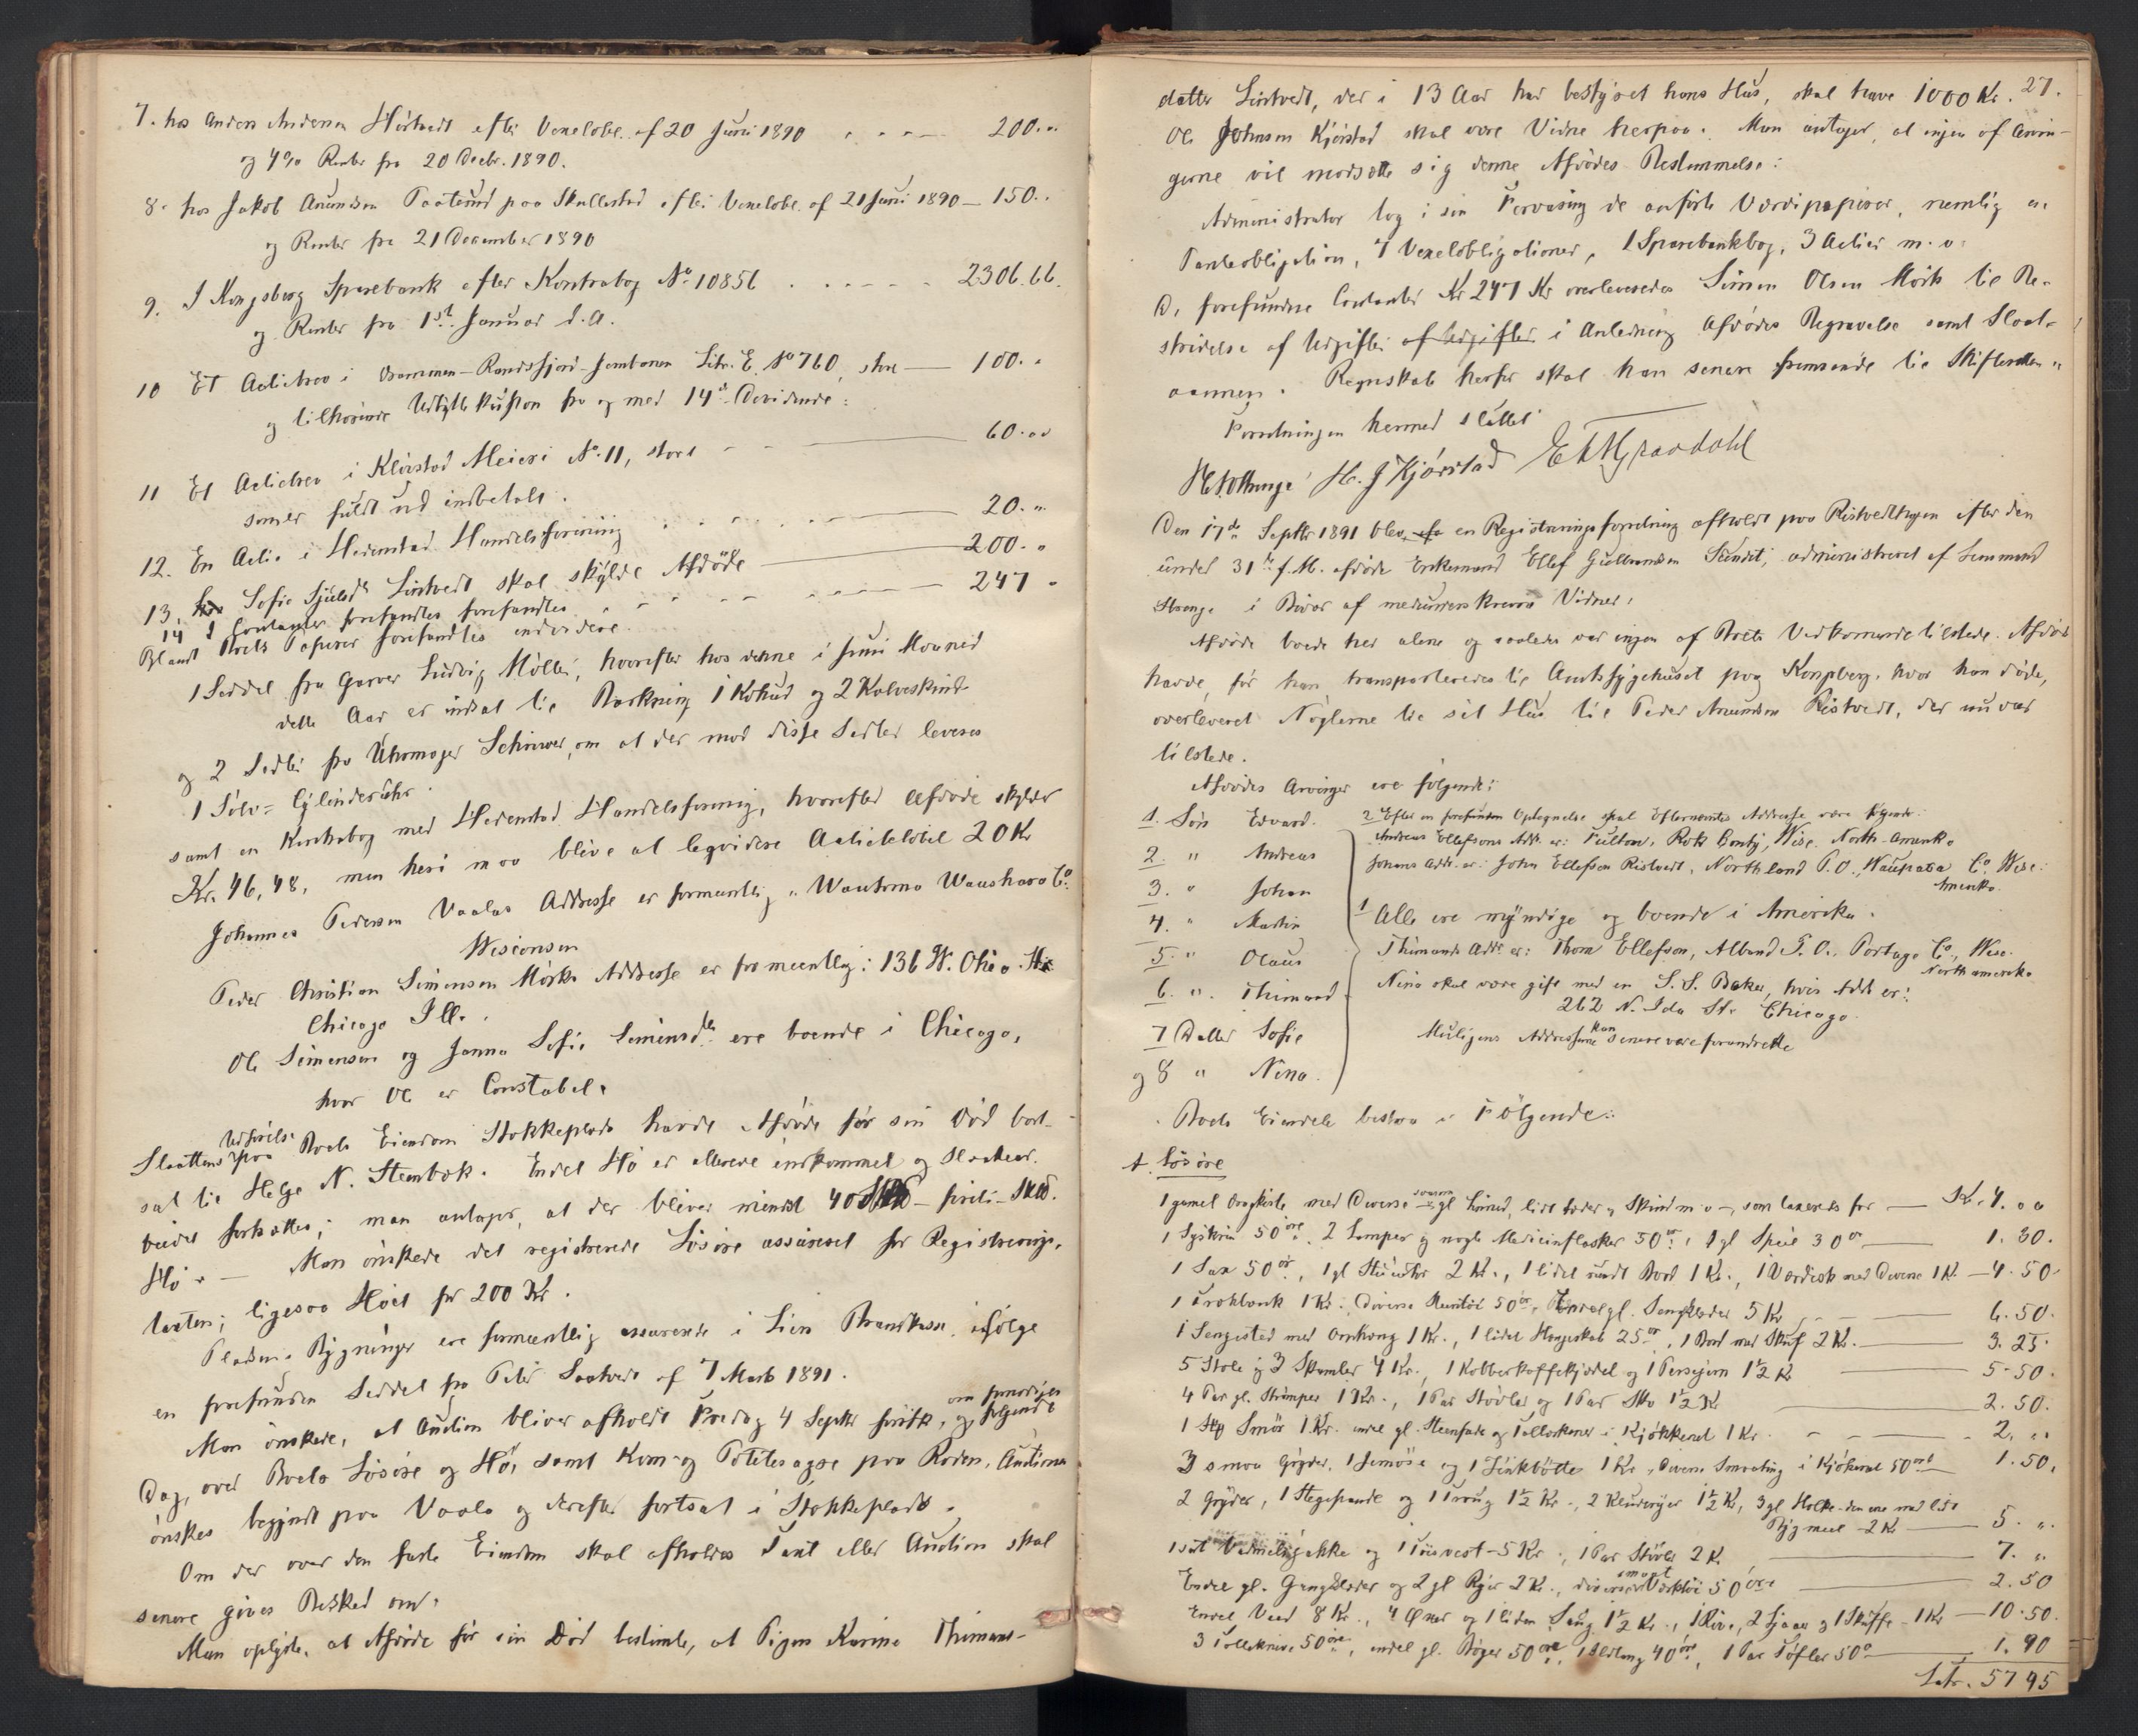 7. hos Anders Andersen Hörtvedt efter Vexelobl. af 20 Juni 1890 . . . — 200. "
og 4% Renter fra 20 Decbr. 1890.
8. hos Jakob Anundsen Taaterud paa Skullestad efter Vexelobl. af 21 Juni 1890 — 150. "
og Renter fra 21 December 1890
9. I Kongsberg Sparebank efter Kontrabog No 10856 . . . . . . 2306.66.
og Renter fra 1st. Januar d.A.
10 Et Actiebrev i Drammen-Randsfjord-Jernbanen Litr. E. No 760, stor — 100. "
og tilhörende Udbytte kupon fra og med 14d. Dividende:
11 Et Actiebrev i Klevstad Meieri No. 11, stort — 60. "
som er fuldt ud indbetalt.
12. En Actie i Hedenstad Handelsforening . . . . . 20. "
13. hos Sofie Sjulsdr Lintvedt skal skylde Afdöde — 200. "
14 I Contanter forefandtes forefandtes . . . . 247 "
Blandt Boets Papirer forefandtes endvidere.
1 Seddel fra Garver Ludvig Möller, hvorefter hos denne i Juni Maaned
dette Aar er indsat til Barkning 1 Kohud og 2 Kalveskind
og 2 Sedler fra Uhrmager Schiwer, om at der mod disse Sedler leveres
1 Sölv= Cylinderuhr.
samt en Kontrabog med Hedenstad Handelsforening, hvorefter Afdöde skylder
Kr. 46,48, men heri maa blive at leqvidere Actiebelöbet 20 Kr
Johannes Pedersen Vaalas Addresse er formentlig „ Wautoma Waushara Co.
Wisconsin
Peder Christian Simensen Mörks Addresse er formentlig: 136 W. Ohio. Str
Chicago Ill.
Ole Simensen og Janna Sofie Simensdtr ere boende i Chicago,
hvor Ole er Constabel.
Slaattens Udförelse paa Boets Eiendom Stokkeplads havde Afdöde för sin Död bort-
sat til Helge N. Stenbæk. Endel Hö er allerede indkommet og Slaatear-
beidet fortsættes; man antager, at der bliver mindst 40 – firti – Skæ.
Hö. — Man önskede det registrerede Lösöre assureret for Registrerings-
taxten; ligesaa Höiet for 200 Kr.
Pladsens Bygninger ere formentlig assurerede i Liens Brandkasse, ifölge
en forefunden Seddel fra Peder Saatvedt af 7 Marts 1891.
Man önskede, at Auction bliver afholdt Fredag 4 Septbr förstk, og om fornödiges fölgende
Dag, over Boets Lösöre og Hö, samt Korn- og Potetesagre paa Roden. Auctionen
önskes begyndt paa Vaala og derefter fortsat i Stokkeplads.
Om der over den faste Eiendom skal afholdes Taxt eller Auction skal
senere gives Besked om.
Man oplyste, at Afdöde för sin Död bestemte, at Pigen Karine Thimans-
27.
datter Lintvedt, der i 13 Aar har bestyret hans Hus, skal have 1000 Kr.
Ole Johnsen Kjörstad skal være Vidne herpaa. Man antager, at ingen af Arvin-
gerne vil modsætte sig denne Afdödes Bestemmelse:
Administrator tog i sin Forvaring de anförte Værdipapirer, nemlig en
Panteobligation, 7 Vexelobligationer, 1 Sparebankbog, 3 Actier m. v.
De forefundne Contanter Kr 247 Kr overleveredes Simen Olsen Mörk til Be-
stridelse af Udgifter af Udgifter i Anledning Afdödes Begravelse samt Slaat-
aannen. Regnskab herfor skal han senere fremsende til Skifteretten "
Forretningen hermed sluttet
H. J Kjörstad
Den 17de Septbr 1891 blev, efter en Registreringsforretning afholdt paa Ristvedthagen efter den
under 31te f. M. afdöde Enkemand Ellef Gulbrandsen Stendit, administreret af Lensmand
Stange i Bivær af medunderskrevne Vidner:
Afdöde boede her alene og saaledes var ingen af Boets Vedkommende tilstede. Afdöde
havde, för han transporteredes til Amtssygehuset paa Kongsberg, hvor han döde,
overleveret Nöglerne til sit Hus til Peder Anundsen Ristvedt, der nu var
tilstede.
Afdödes Arvinger ere fölgende:
1. Sön Edvard. 2 Efter en forefunden Optegnelse skal Eftenævntes Addresse være fölgende:
2. " Andreas Andreas Ellefsons Adr. er: Fulton, Rock County, Wisc. North-Amerika
3. " Johan Johans Adr. er: John Ellefson Ristvedt, Northland P.O., Waupaca Co. Wisc. Amerika.
4. " Martin 1 Alle ere myndige og boende i Amerika.
5. " Olaus Thimands Adr. er: Thom Ellefson, Alband P.O., Portage Co., Wisc. North amerika
6. " Thimand Nina skal være gift med en S. S. Baker, hvis Adr er:
262 N. Ida Str Chicago
7 Datter Sofie Muligens Addresserne kan senere være forandrede
og 8 " Nina.
Boets Eiendele bestaa i Fölgende:
A. Lösöre
1 gammel Dragkiste med Diverse saasom gl hörned, lidt foder og Skind m. v., som taxeres for — Kr. 4. "
1 Syskrin 50 öre. 2 Lamper og nogle Medicinflasker 50 ör, 1 gl Speil 30 ör — 1. 30.
1 Sax 50 ör, 1 gl Stueuhr 2 Kr., 1 lidet rundt Bord 1 Kr., 1 Vardisk med Diverse 1 Kr — 4. 50.
1 Trækbænk 1 Kr. Diverse Kunstöi 50 ör, Endel gl. Sengklæder 5 Kr — 6. 50.
1 Sengested med Omhæng 1 Kr., 1 lidet Hængeskab 25 ör, 1 Bord med Skuf 2 Kr. — 3. 25.
5 Stole og 3 Skamler 4 Kr., 1 Kobberkaffekjedel og 1 Persejern 1½ Kr — 5. 50.
4 Par gl. Strömper 1 Kr., 1 Par Stövler og 1 Par Sko 1½ Kr — 2. 50.
1 Stp Smör 1 Kr. endel gl. Steenfade og Tallerkener i Kjökkenet 1 Kr. — 2. "
3 smaa Gryder, 1 Semöse og 1 Sinkbötte 1 Kr., diverse Smaating i Kjökenet 50 öre — 1. 50.
2 Gryder, 1 Stegepande og 1 Traug 1½ Kr., 2 1½ Kr, 3 gl Holke - den ene med lidt
Bygmeel 2 Kr — 5. "
1 sæt og 1 – 5 Kr., 1 Par Stövler 2 Kr — 7. "
Endel gl. Gangklæder og 2 gl Ryer 2 Kr., diverse smaat Værktöi 50 öre — 2. 50
Endel Veed 8 Kr., 4 Öxer og 1 liden Saug 1½ Kr., 1 Rive, 2 Ljaaer og 1 Skuffe - 1 Kr — 10. 50.
3 Tolleknive 50 öre, endel gl. Böger 50 öre, 1 Ildtang 40 öre, 1 Par Töfler 50 ö — 1. 90
Latr. 57 95